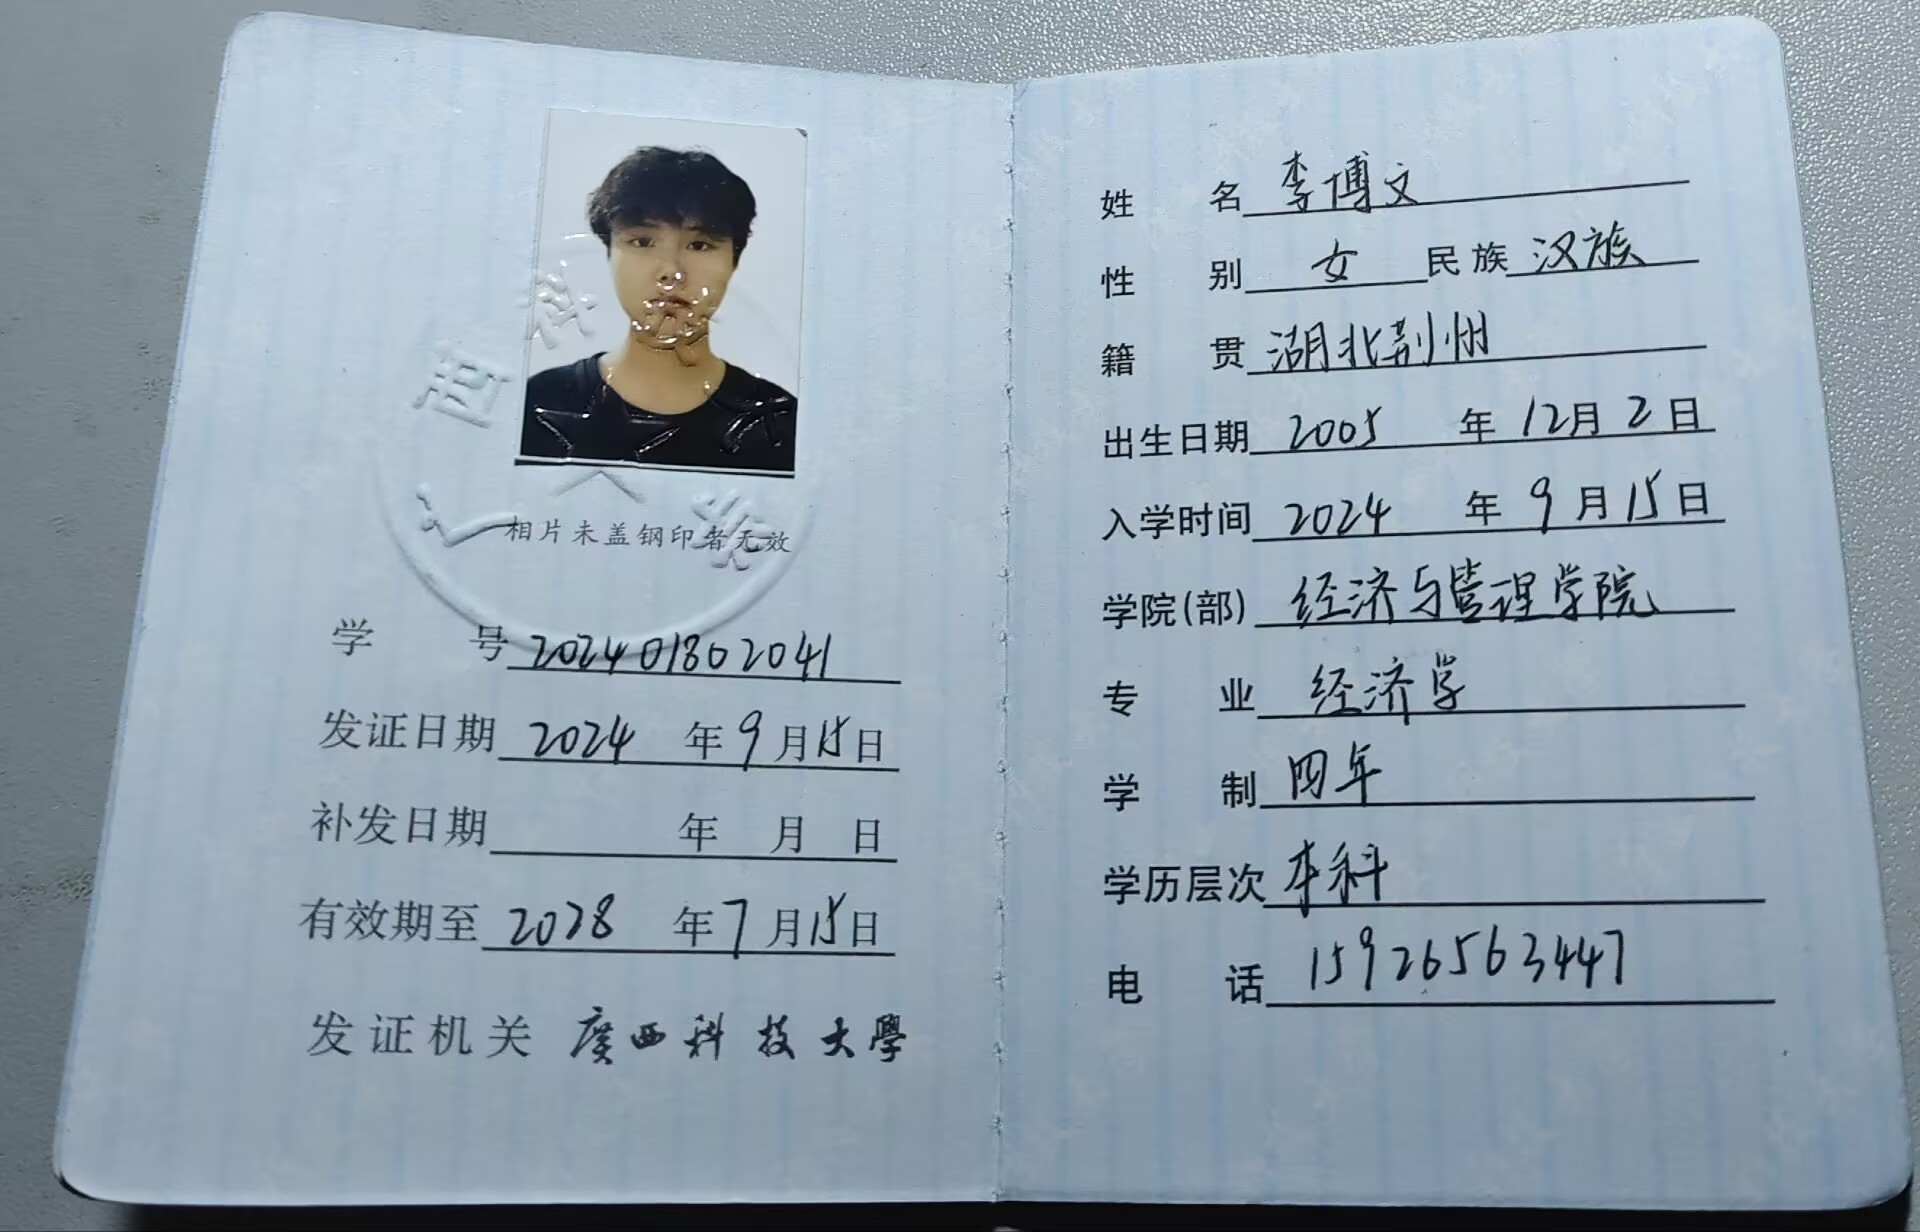 广西科技大学
相片未盖钢印者无效
学 号 202401802041
发证日期 2024 年 9 月 15 日
补发日期 年 月 日
有效期至 2028 年 7 月 15 日
发证机关 廣西科技大學
姓 名 李博文
性 别 女 民族 汉族
籍 贯 湖北荆州
出生日期 2005 年 12 月 2 日
入学时间 2024 年 9 月 15 日
学院(部) 经济与管理学院
专 业 经济学
学 制 四年
学历层次 本科
电 话 15926563447